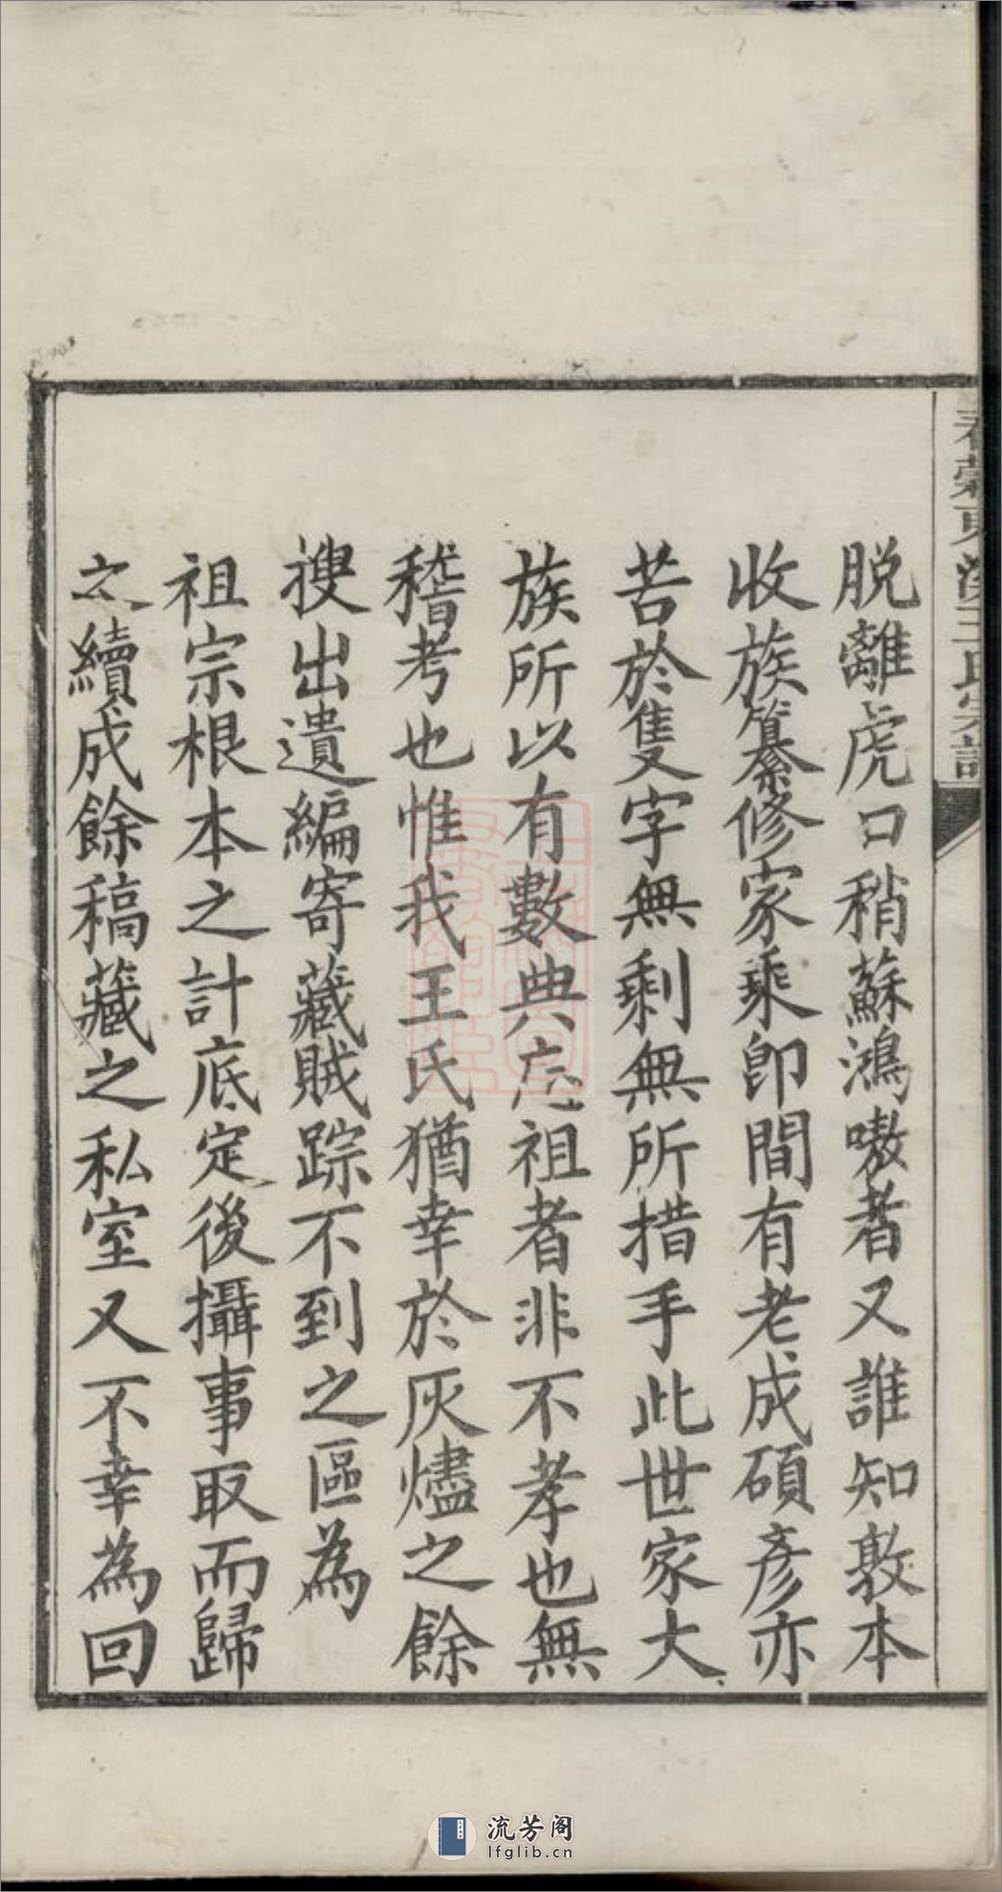 脱離虎口稍蘇鴻嗷者又誰知敦本
收族纂修家乘卽間有老成碩彥亦
苦於隻字無剩無所措手此世家大
族所以有數典忘祖者非不孝也無
稽考也惟我王氏猶幸於灰燼之餘
搜出遺編寄藏賊踪不到之區為
祖宗根本之計底定後攝事取而歸
之續成餘稿藏之私室又不幸為回
流芳阁
lfglib.cn